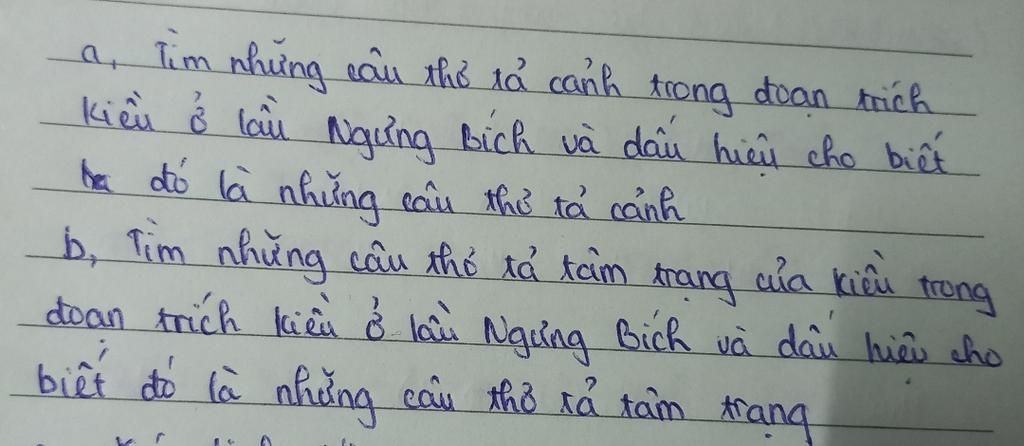 a, Tìm những câu thơ tả cảnh trong đoạn trích
Kiều ở lầu Ngưng Bích và dấu hiệu cho biết
đó là những câu thơ tả cảnh
b, Tìm những câu thơ tả tâm trạng của Kiều trong
đoạn trích Kiều ở lầu Ngưng Bích và dấu hiệu cho
biết đó là những câu thơ tả tâm trạng